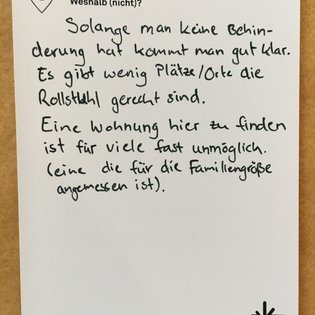 Weshalb (nicht)?
Solange man keine Behin-
derung hat kommt man gut klar.
Es gibt wenig Plätze/Orte die
Rollstuhl gerecht sind.
Eine Wohnung hier zu finden
ist für viele fast unmöglich.
(eine die für die Familiengröße
angemessen ist).